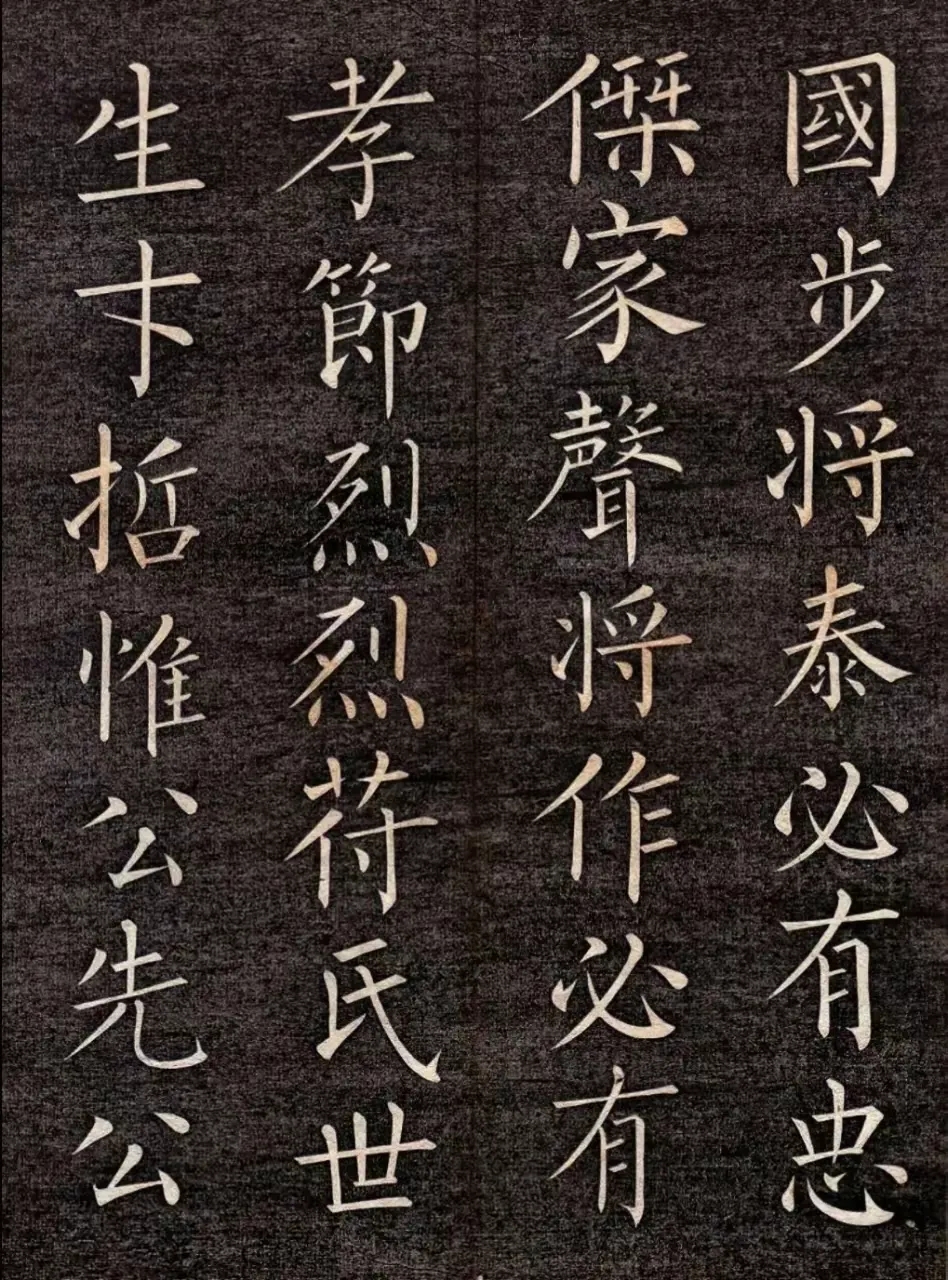 國步将泰必有忠
傑家聲将作必有
孝節烈烈苻氏世
生卞哲惟公先公